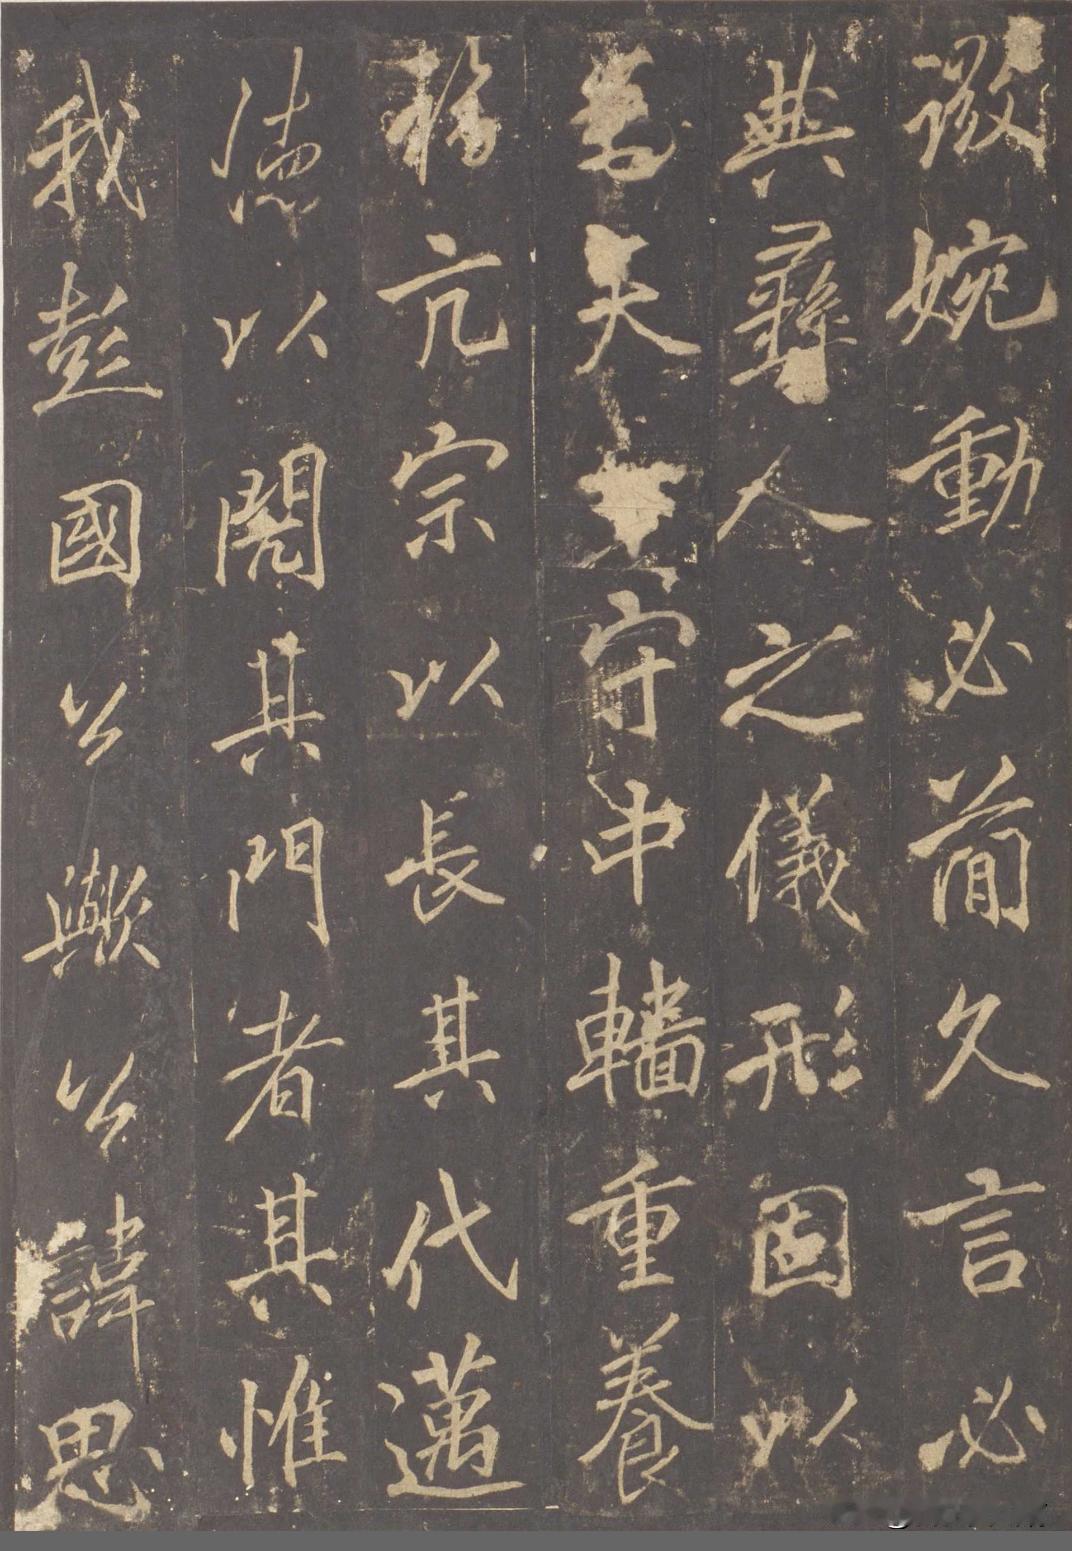 婉動必簡久言必
典彝人之儀形固以
守中轖重養
亢宗以長其代邁
德以其門者其惟
我彭國公歟公諱思